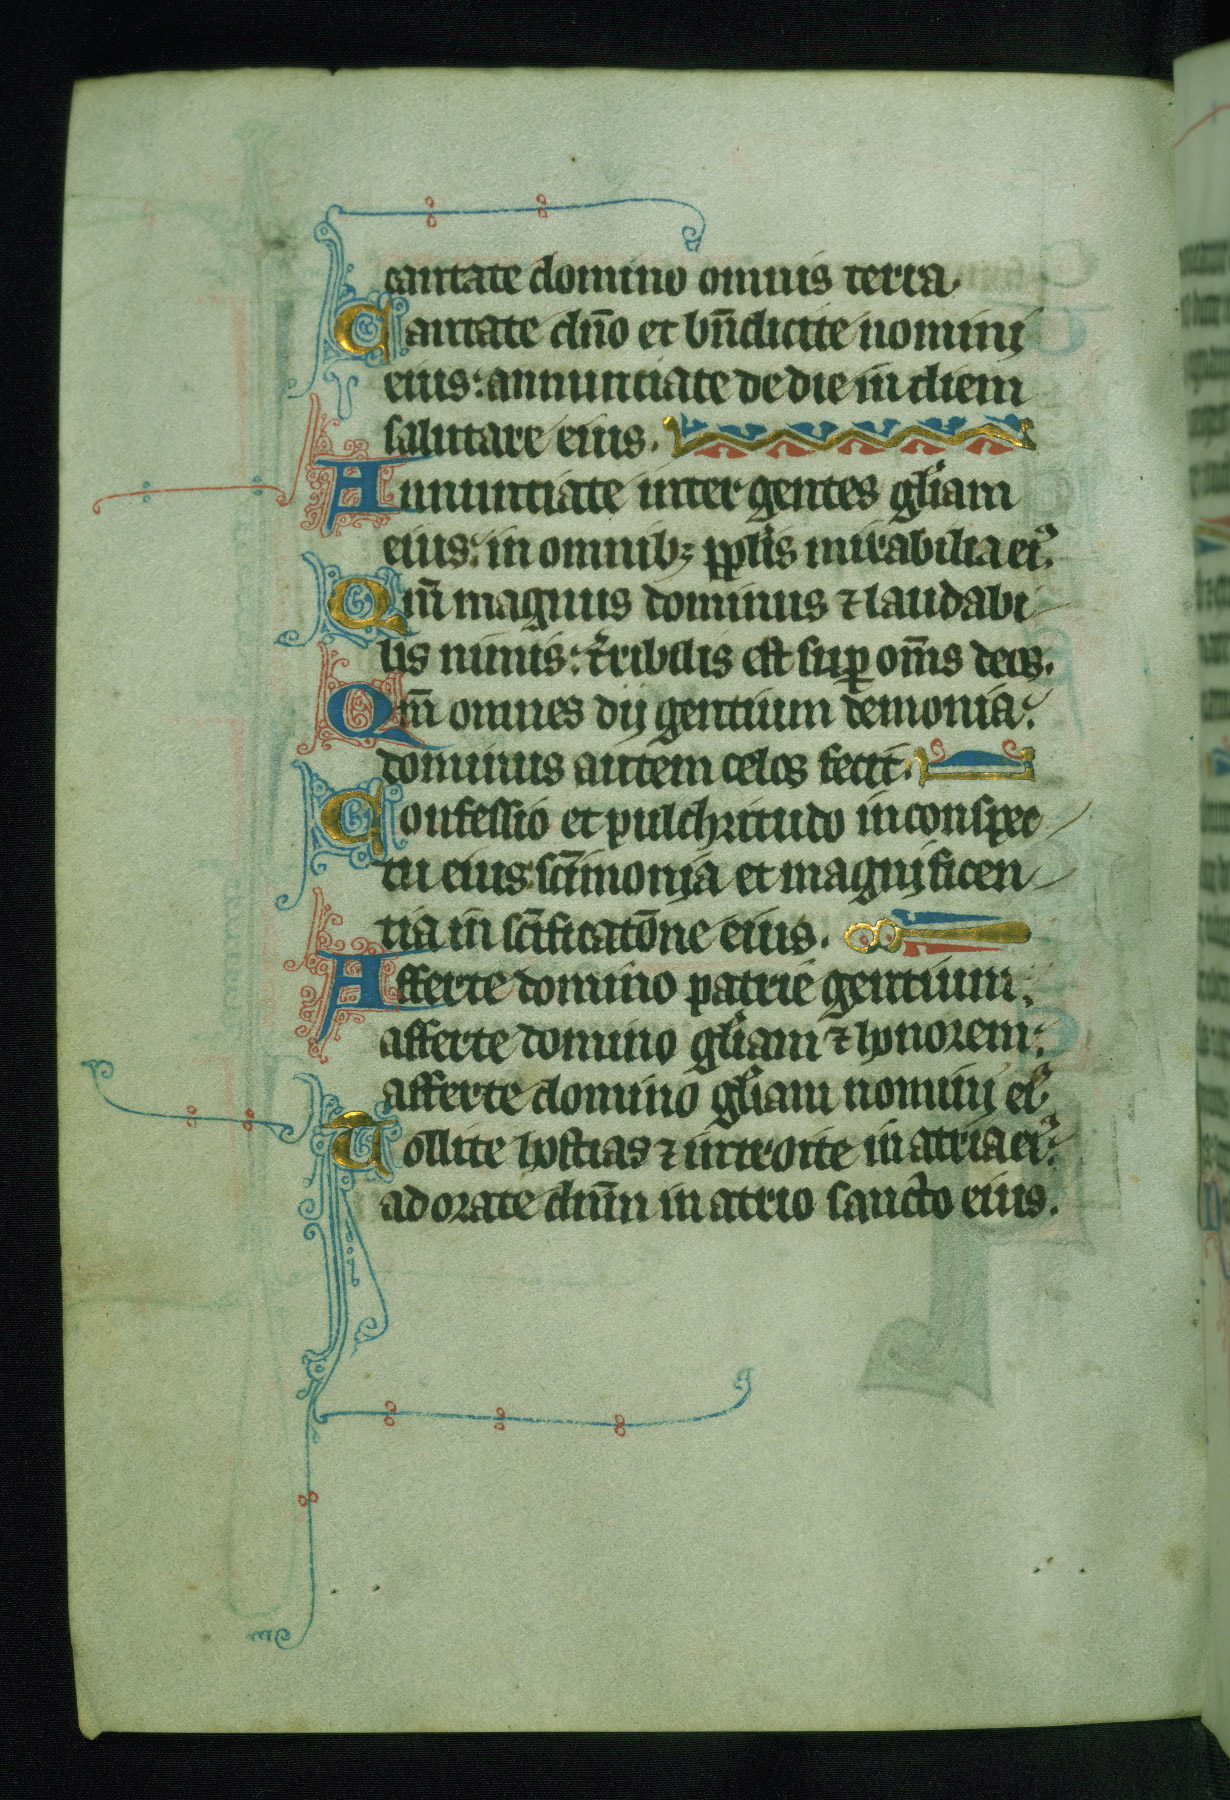 cantate domino omnis terra.
Cantate dn̄o et bn̄dicite nomini
eius: annunciate de die in diem
salutare eius.
Annunciate inter gentes gl̓iam
eius: in omnibꝫ ppl̓is mirabilia ei᾽.
Qm̄ magnus dominus ⁊ laudabi
lis nimis: t̓ribilis est suꝑ om̄s deos.
Qm̄ omnes dij gentium demonia:
dominus autem celos fecit.
Confessio et pulchritudo in conspec
tu eius: sc̄imonia et magnificen
tia in sc̄ificatōne eius.
Afferte domino patrie gentium,
afferte domino gl̓iam ⁊ honorem:
afferte domino gl̓iam nomini ei᾽.
Tollite hostias ⁊ introite in atria ei᾽:
adorate dn̄m in atrio sancto eius.